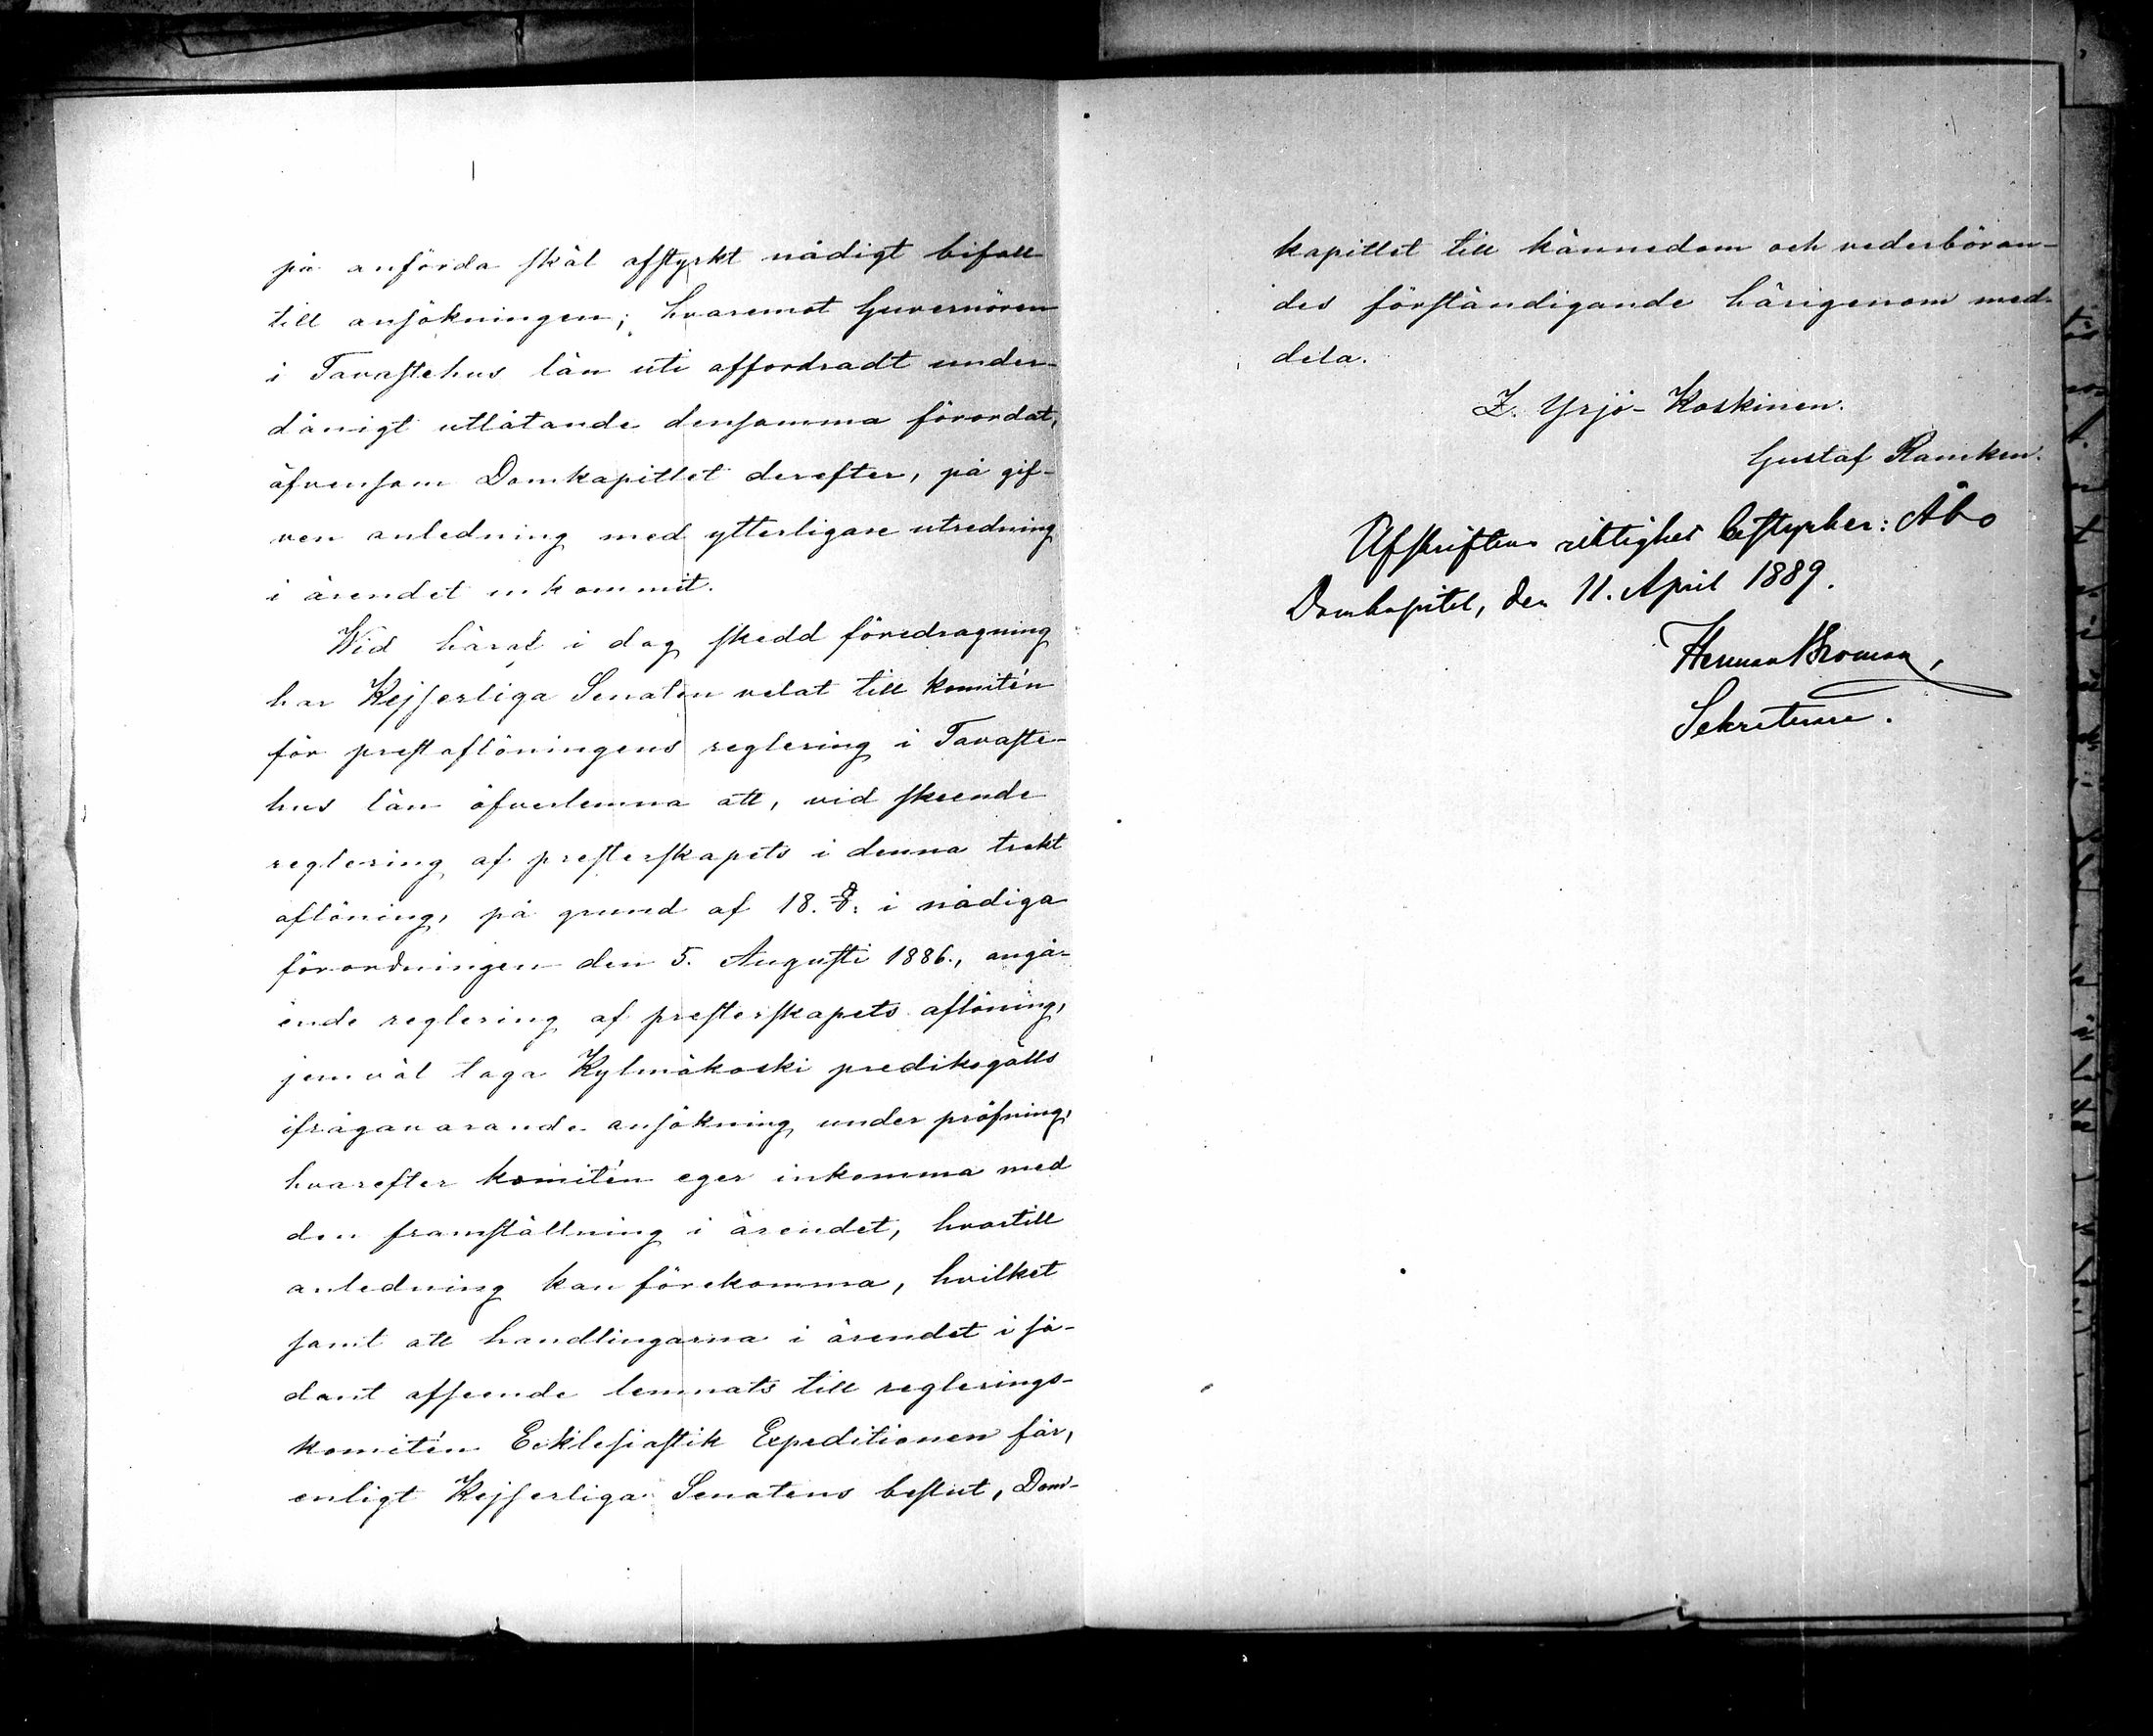 på anförda skäl afstyrkt nådigt bifall
till ansökningen; hvaremot Guvernören
i Tavastehus län uti affordradt under-
dånigt utlåtande densamma förordat,
äfvensom Domkapitlet derefter, på gif-
ven anledning med ytterligare utredning
i ärendet inkommit.
Wid häraf i dag skedd föredragning
har Kejserliga Senaten velat till komitén
för prestaflöningens reglering i Tavaste-
hus län öfverlemna att, vid skeende
reglering af presterskapets i denna trakt
aflöning, på grund af 18. §. i nådiga
förordningen den 5. Augusti 1886., angå-
ende reglering af presterskapets aflöning,
jemväl taga Kylmäkoski predikogälls
ifrågavarande ansökning under pröfning,
hvarefter komitén eger inkomma med
den framställning i ärendet, hvartill
anledning kan förekomma, hvilket
samt att handlingarna i ärendet i så-
dant afseende lemnats till reglerings-
komitén Ecklesiastik Expeditionen får,
enligt Kejserliga Senatens beslut, Dom-
kapitlet till kännedom och vederböran-
des förständigande härigenom med-
dela.
Z. Yrjö-Koskinen.
Gustaf Ramken.
Afskriftens riktighet bestyrker: Åbo
Domkapitel, den 11. April 1889.
Herman Broman,
Sekreterare.